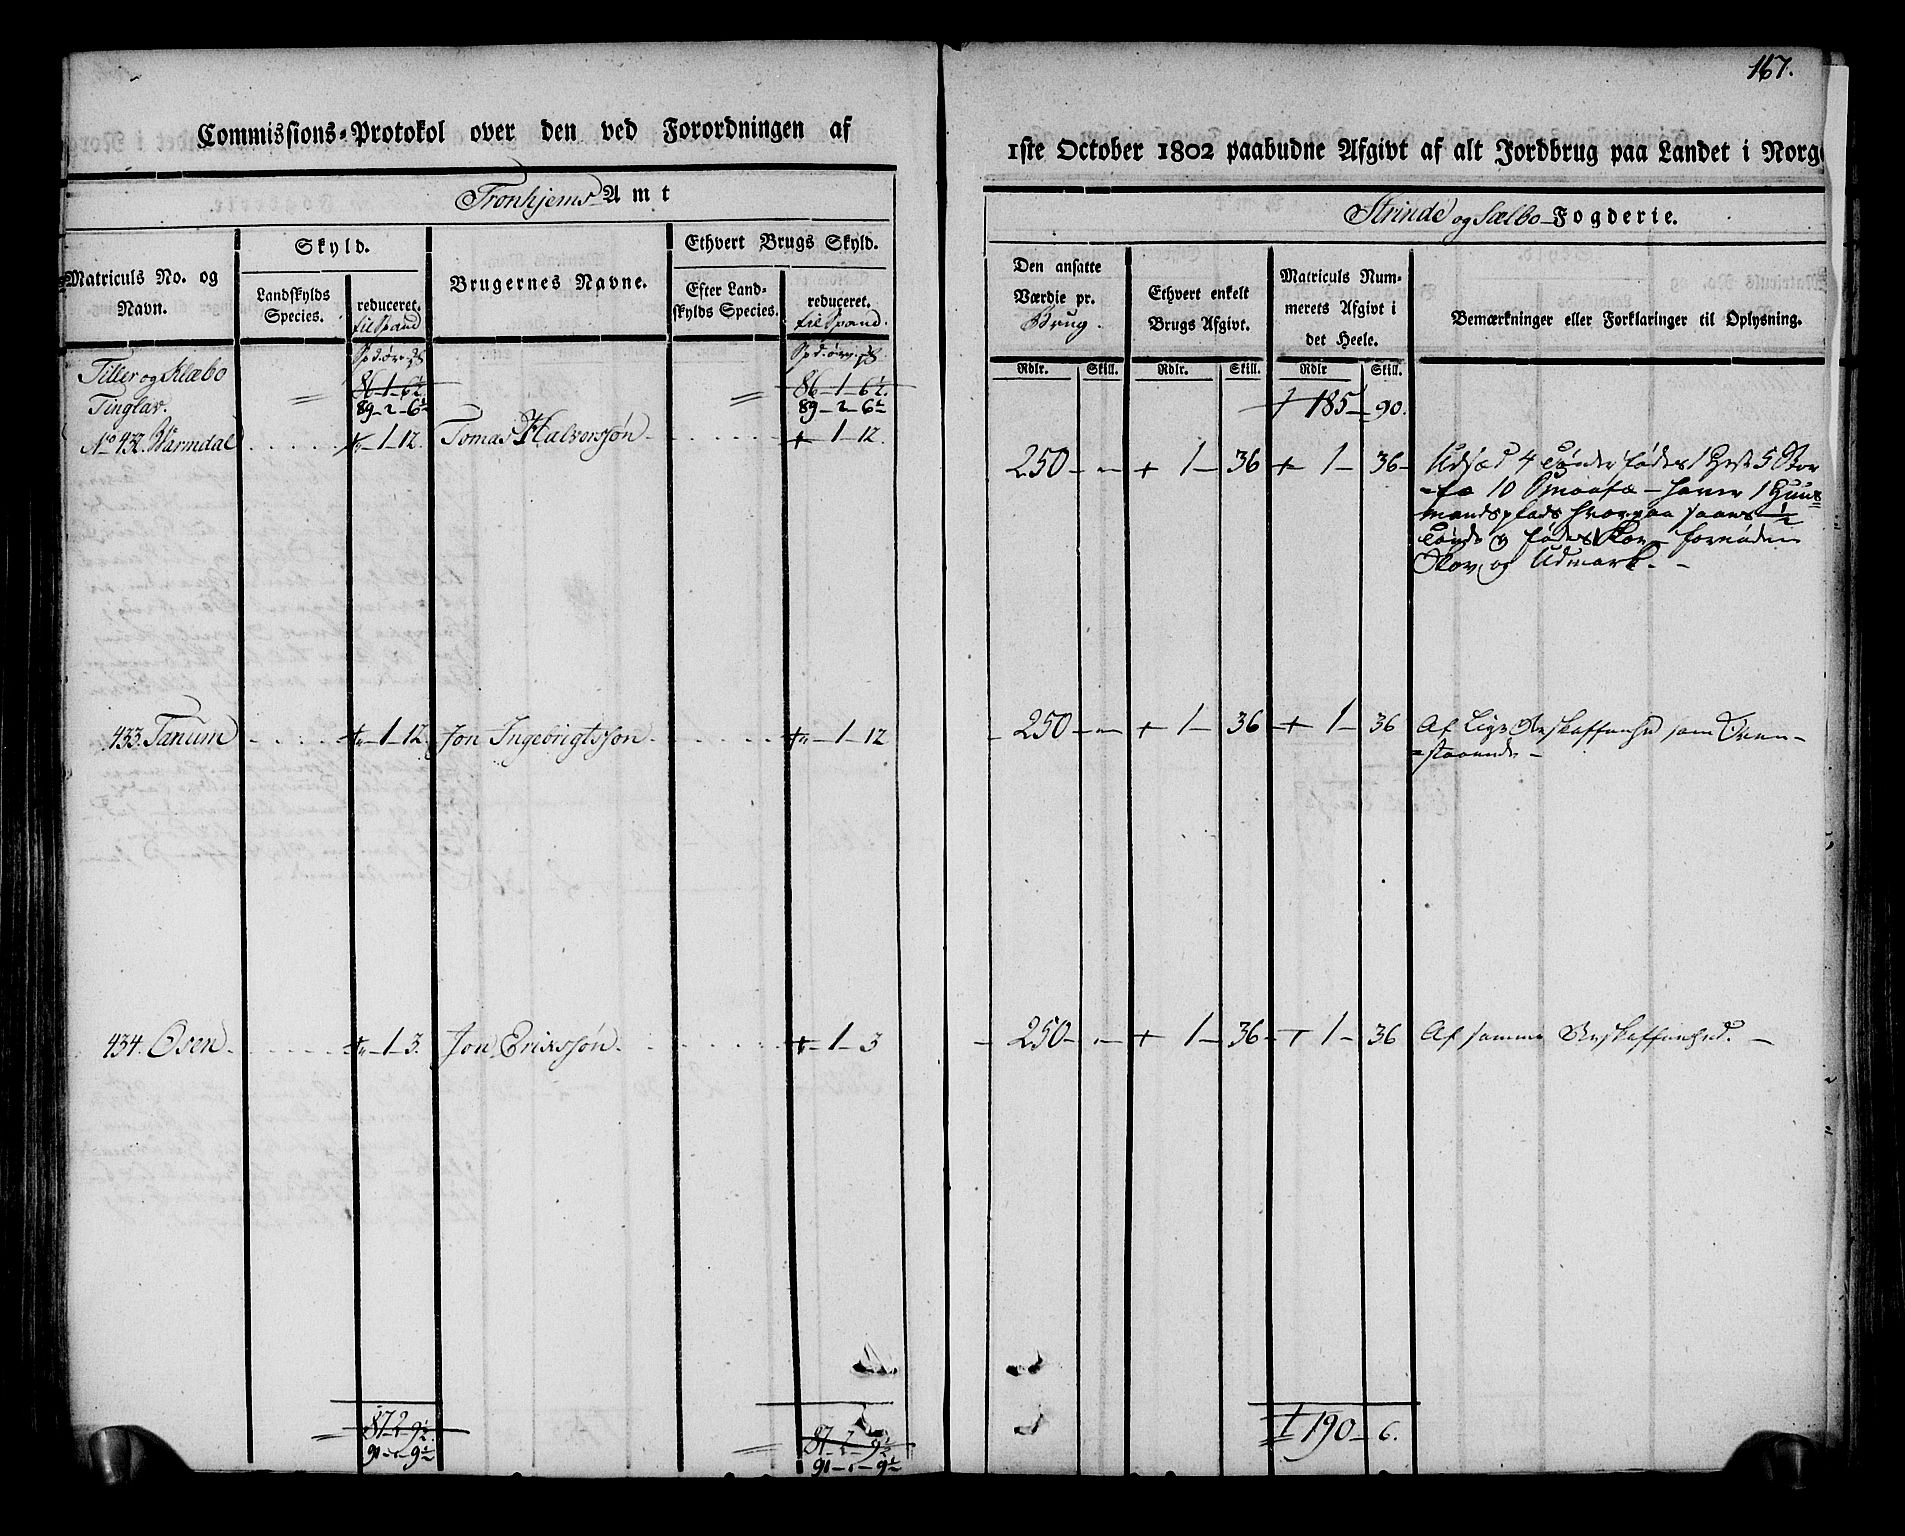 167.
Commissions=Protokol over den ved Forordningen af
1ste October 1802 paabudne Afgivt af alt Jordbrug paa Landet i Norge
Tronhjems Amt
Strinde og Sælbo Fogderie.
Matriculs No. og Navn.
Skyld.
Landskylds Species.
reduceret. til Spand
Brugernes Navne.
Ethvert Brugs Skyld.
Efter Landskylds Species.
reduceret. til Spand.
Den ansatte Værdie pr. Brug.
Ethvert enkelt Brugs Afgivt.
Matriculs Nummerets Afgivt i det Heele.
Bemærkninger eller Forklaringer til Oplysning.
Rdlr. Skill. Rdlr. Skill. Rdlr Skill.
Tiller og Klæbo
Tinglav.
86-1-6½
89-2-6½
86-1-6½.
89-2-6½
185-90.
No 432. Warmdal
-1-12.
Tomas Halvorssøn
-1-12.
250
1-36
1-36
Udsæd 4 Tønder fødes 1 Hest 5 Stor
-fæ 10 Smaafæ - haver 1 Huus
mandsplads hvorpaa saaes ½
Tønde og fødes 1 Koe - fornøden
Skov og Udmark.
433. Tanum
-1-12
Jon Ingebrigtssøn
-1-12
250
1-36
1-36
Af Lige Beskaffenhed som Oven-
=staaende-
434. Osen
-1-3.
Jon Erikssøn
-1-3
250
1-36
1-36
Af samme Beskaffenhed.
87-2-9½.
91-"-9½
87-2-9½
91-"-9½
190-6.